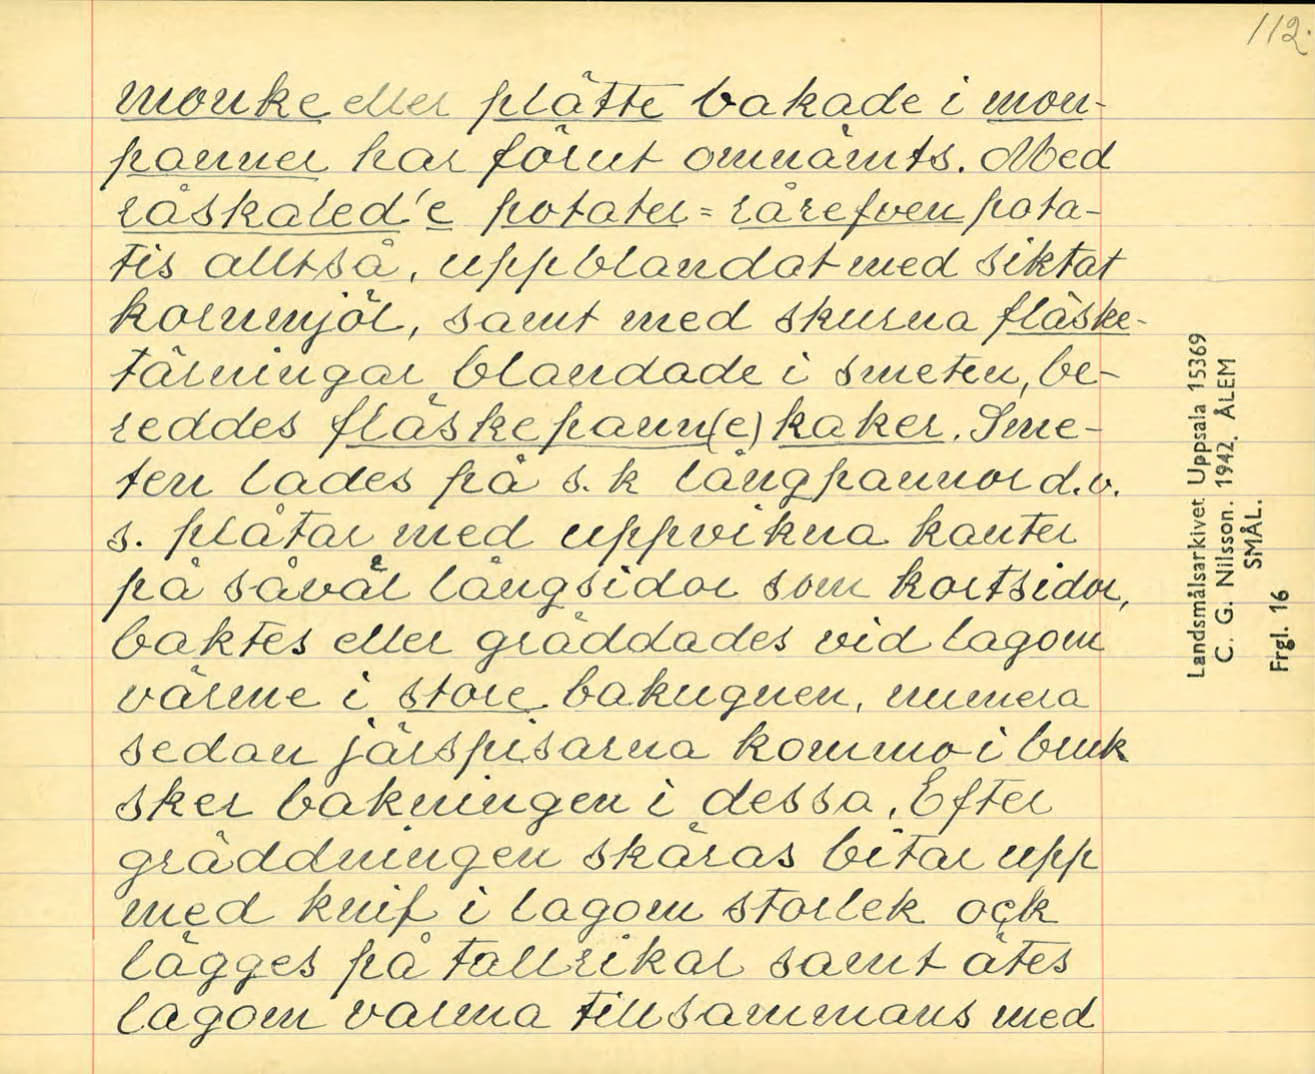 112.
monke eller plätte bakade i mon-
panner har förut omnämts. Med
råskaled'e potater = rårefven pota-
tis alltså, uppblandat med siktat
kornmjöl, samt med skurna fläske-
tärningar blandade i smeten, be-
reddes fläskepann(e)kaker. Sme-
ten lades på s. k långpannor d.v.
s. plåtar med uppvikna kanter
på såväl långsidor som kortsidor,
baktes eller gräddades vid lagom
värme i store bakugnen, numera
sedan järspisarna kommo i bruk
sker bakningen i dessa. Efter
gräddningen skäras bitar upp
med knif i lagom storlek ock
lägges på tallrikar samt ätes
lagom varma tillsammans med
Landsmålsarkivet Uppsala 15369
C. G. Nilsson. 1942. ÅLEM
SMÅL.
Frgl. 16